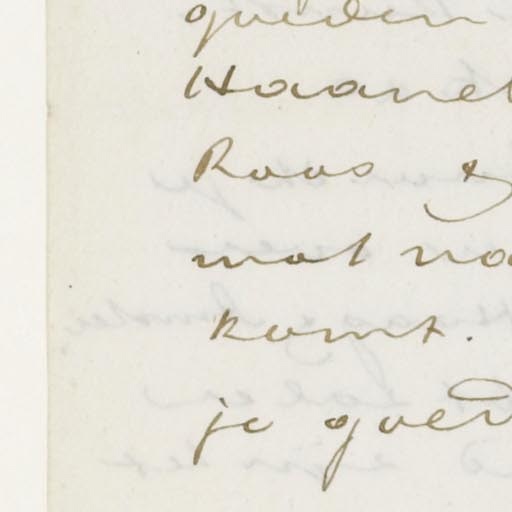 goeden
Haanel
Roos
wat na
komt.
je goed